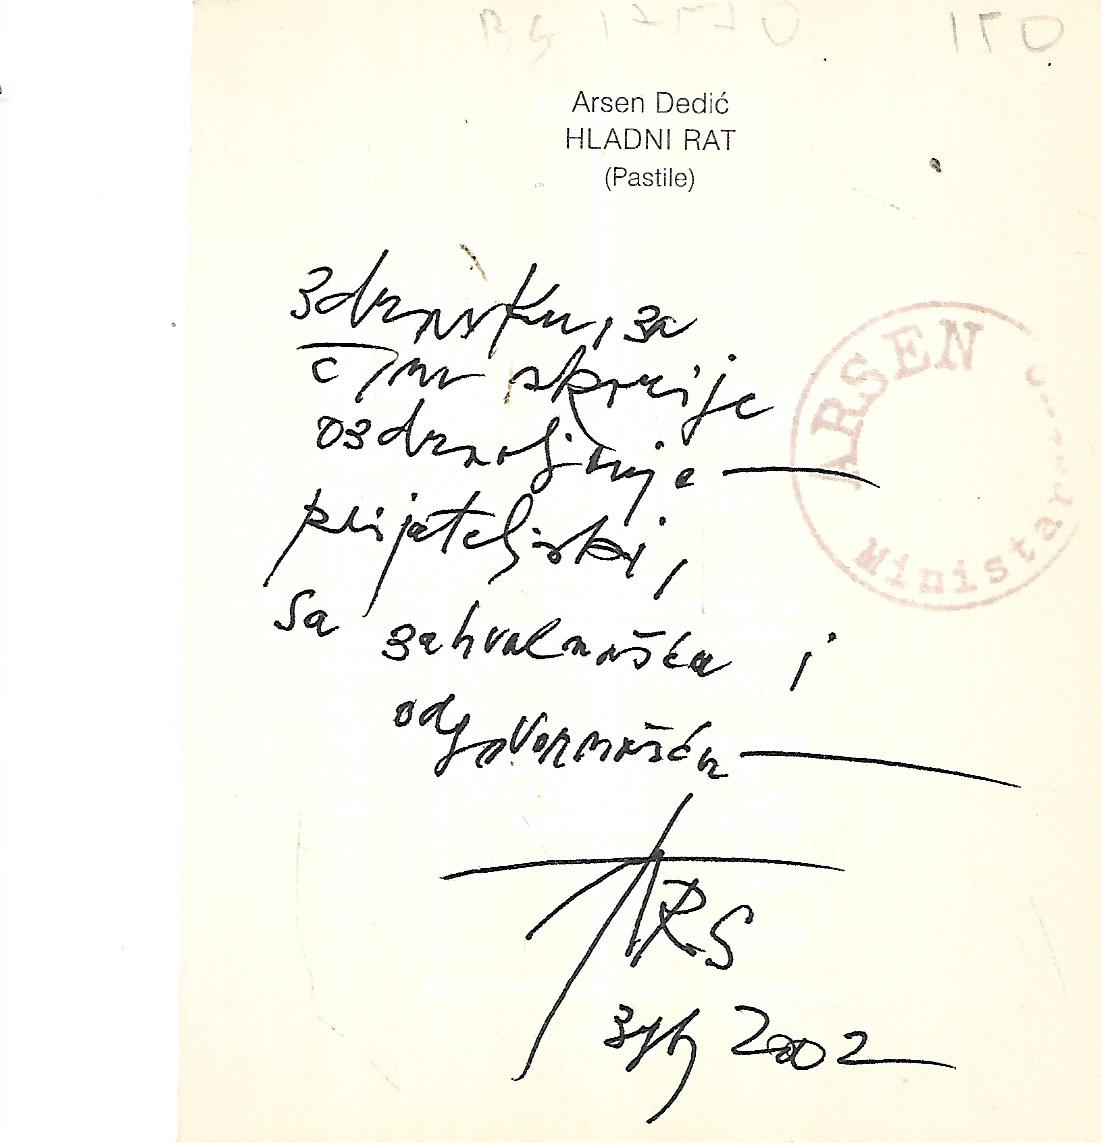 150
Arsen Dedić
HLADNI RAT
(Pastile)
Zdravku, za
čim skorije
ozdravljenje —
prijateljski,
sa zahvalnošću i
odgovornošću —
ARS
Zgb 2002
ARSEN
Ministar